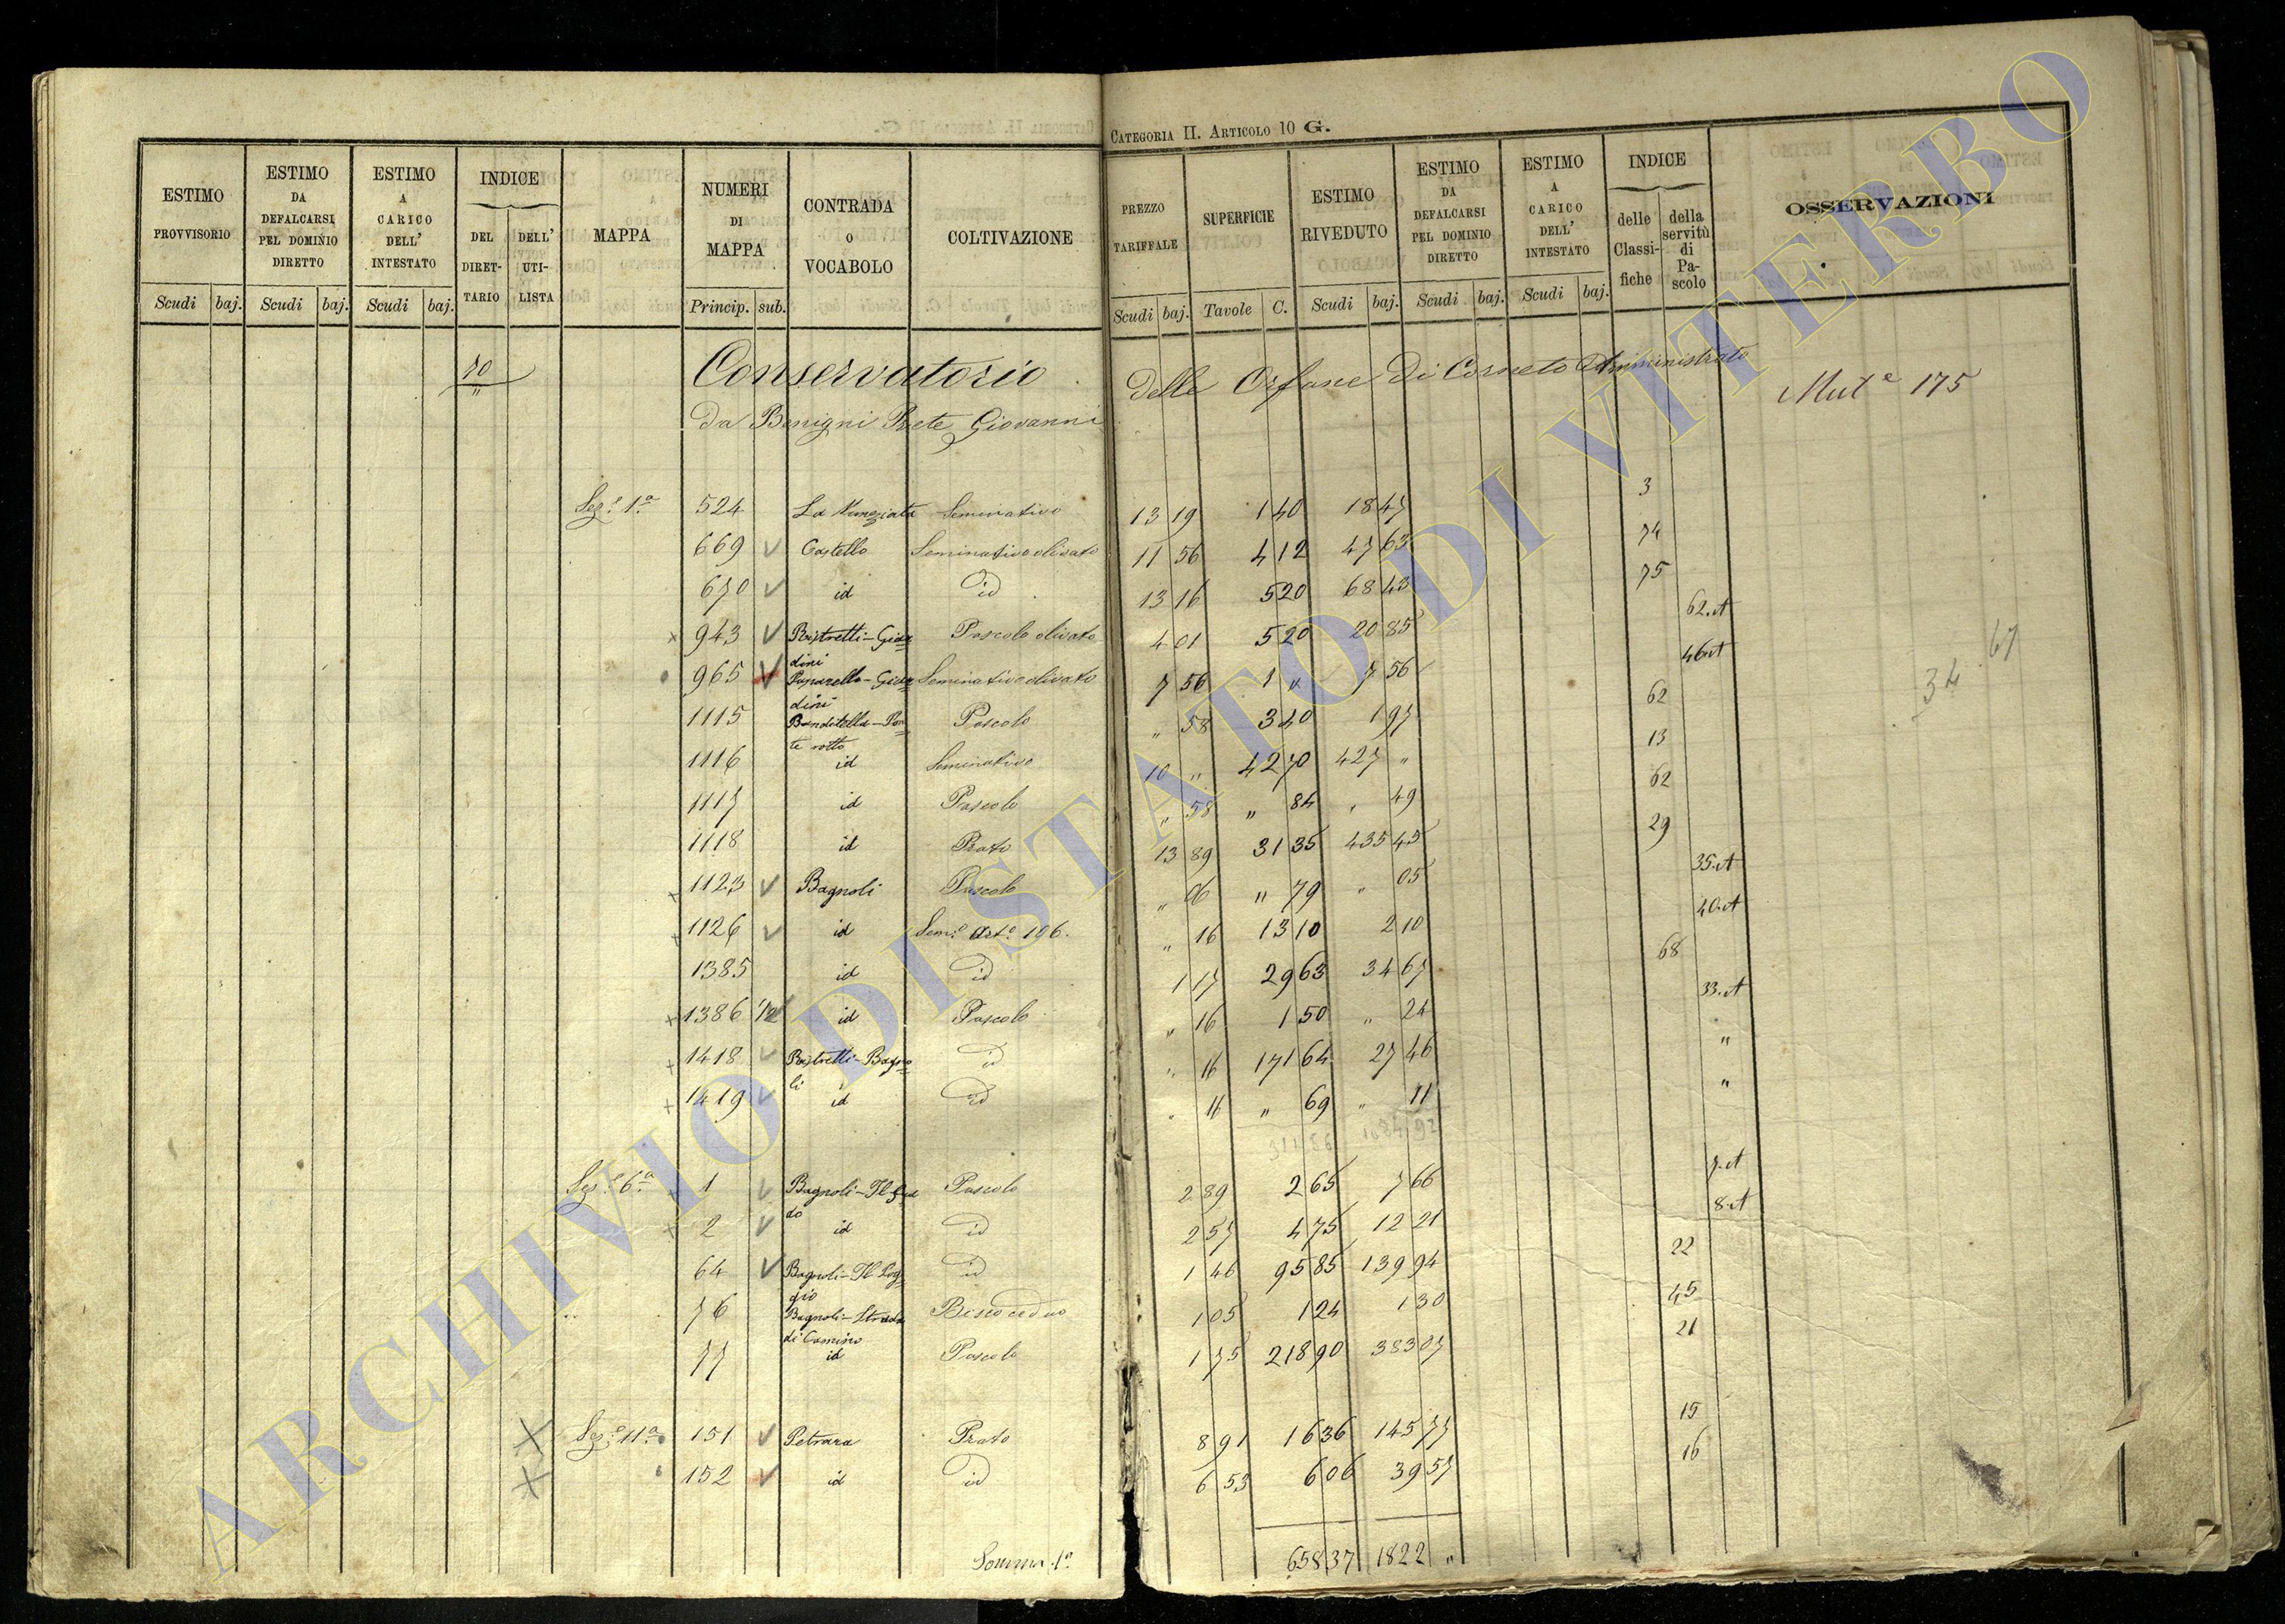 CATEGORIA II. ARTICOLO 10 G.
ESTIMO PROVVISORIO | ESTIMO DA DEFALCARSI PEL DOMINIO DIRETTO | ESTIMO A CARICO DELL' INTESTATO | INDICE DEL DIRETTARIO | DELL' UTILISTA | MAPPA | NUMERI DI MAPPA | CONTRADA O VOCABOLO | COLTIVAZIONE | PREZZO TARIFFALE | SUPERFICIE | ESTIMO RIVEDUTO | ESTIMO DA DEFALCARSI PEL DOMINIO DIRETTO | ESTIMO A CARICO DELL' INTESTATO | INDICE delle Classifiche | della servitù di Pascolo | OSSERVAZIONI
Scudi baj. Scudi baj. Scudi baj. Princip. sub. Scudi baj. Tavole C. Scudi baj. Scudi baj. Scudi baj.
70 Conservatorio delle Orfane di Corneto Amministrato Mut.e 175
da Benigni Prete Giovanni
Sez.e 1.a 524 La Nunziata Seminativo 13 19 1 40 18 47 3
669 Castello Seminativo olivato 11 56 4 12 47 63 74
670 id id 13 16 5 20 68 43 75
943 Ristretti-Giardini Pascolo olivato 4 01 5 20 20 85 62.A
965 Paparello-Giardini Seminativo olivato 7 56 1 " 7 56 46A 67
34
1115 Banditella-Ponte rotto Pascolo " 58 3 40 1 97 62
1116 id Seminativo 10 " 42 70 427 " 13
1117 id Pascolo " 58 " 84 " 49 62
1118 id Prato 13 89 31 35 435 45 29
1123 Bagnoli Pascolo " 06 " 79 " 05 35.A
1126 id Sem.e Art.o 106. " 16 13 10 2 10 40.A
1385 id id 1 17 29 63 34 67 68
1386 1/2 id Pascolo " 16 1 50 " 24 33.A
1418 Ristretti-Bagnoli id " 16 171 64 27 46 "
1419 id id " 16 " 69 " 11 "
Sez.e 6.a 1 Pascolo 2 89 2 65 7 66 7.A
2 id id 2 57 4 75 12 21 8.A
64 Bagnoli-Il Poggio id 1 46 95 85 139 94 22
76 Bagnoli-Strada di Camino Bosco ceduo 1 05 1 24 1 30 45
77 id Pascolo 1 75 218 90 383 07 21
Sez.e 11.a 151 Petrara Prato 8 91 16 36 145 77 15
152 id id 6 53 6 06 39 57 16
Somma 1.a 658 37 1822 "
ARCHIVIO DI STATO DI VITERBO